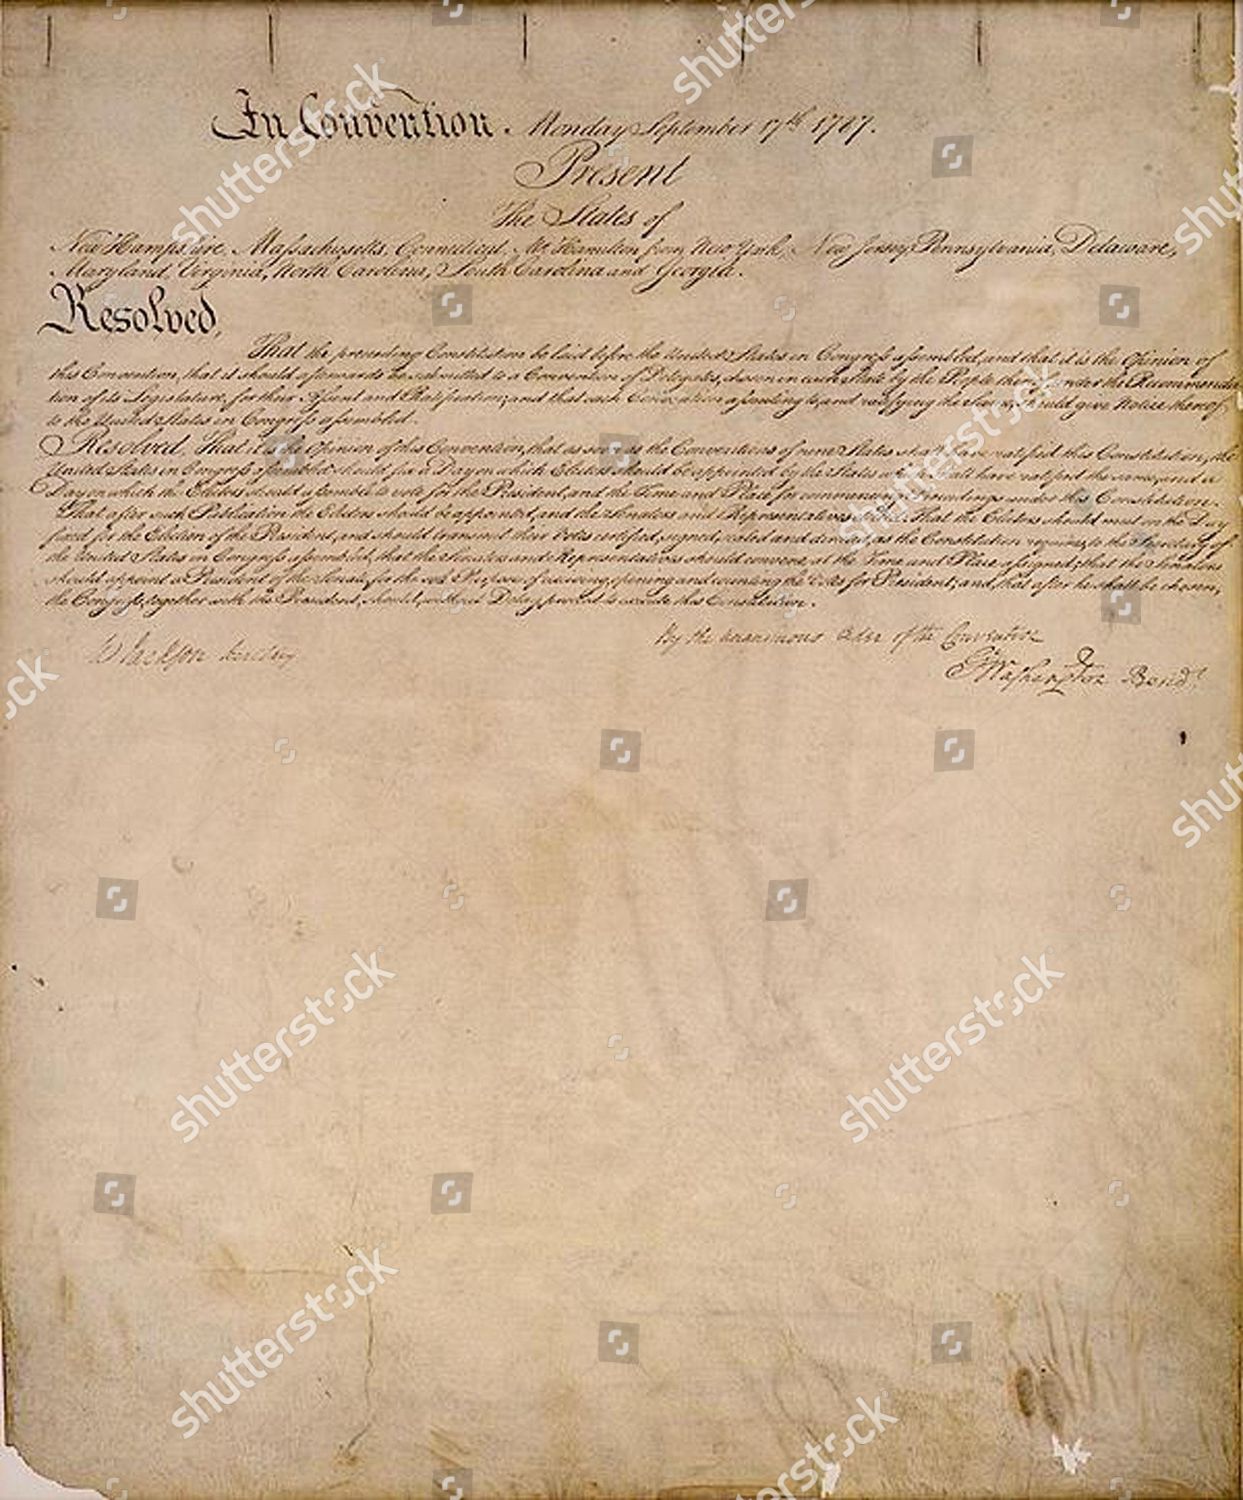 In Convention. Monday September 17th 1787.
Present
The States of
New Hampshire, Massachusetts, Connecticut, Mr. Hamilton from New York, New Jersey, Pennsylvania, Delaware,
Maryland, Virginia, North Carolina, South Carolina and Georgia.
Resolved,
That the preceeding Constitution be laid before the United States in Congress assembled, and that it is the Opinion of
this Convention, that it should afterwards be submitted to a Convention of Delegates, chosen in each State by the People thereof, under the Recommenda-
tion of its Legislature, for their Assent and Ratification; and that each Convention assenting to, and ratifying the Same, should give Notice thereof
to the United States in Congress assembled.
Resolved, That it is the Opinion of this Convention, that as soon as the Conventions of nine States shall have ratified this Constitution, the
United States in Congress assembled should fix a Day on which Electors should be appointed by the States which shall have ratified the same, and a
Day on which the Electors should assemble to vote for the President, and the Time and Place for commencing Proceedings under this Constitution.
That after such Publication the Electors should be appointed, and the Senators and Representatives elected: That the Electors should meet on the Day
fixed for the Election of the President, and should transmit their Votes certified, signed, sealed and directed, as the Constitution requires, to the Secretary of
the United States in Congress assembled, that the Senators and Representatives should convene at the Time and Place assigned; that the Senators
should appoint a President of the Senate, for the sole Purpose of receiving, opening and counting the Votes for President; and, that after he shall be chosen,
the Congress, together with the President, should, without Delay, proceed to execute this Constitution.
By the unanimous Order of the Convention
W Jackson Secretary.
Go: Washington Presidt.
shutterstock
shutterstock
shutterstock
shutterstock
shutterstock
shutterstock
shutterstock